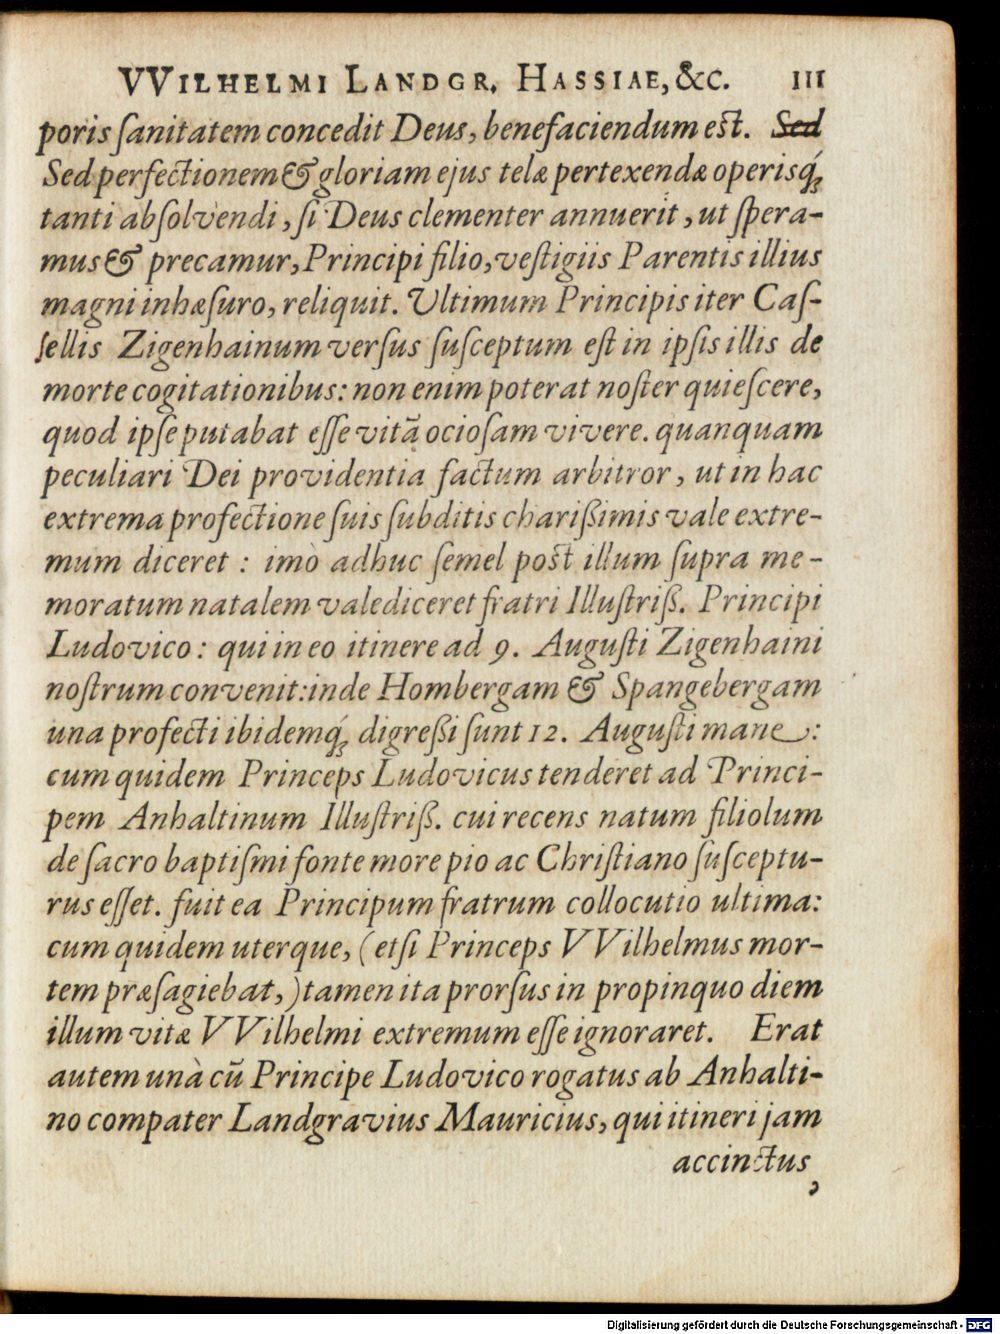 VVILHELMI LANDGR. HASSIAE, &C. 111
poris ſanitatem concedit Deus, benefaciendum eſt. Sed
Sed perfectionem & gloriam ejus telæ pertexendæ operisq́;
tanti abſolvendi, ſi Deus clementer annuerit, ut ſpera-
mus & precamur, Principi filio, veſtigiis Parentis illius
magni inhæſuro, reliquit. Ultimum Principis iter Caſ-
ſellis Zigenhainum verſus ſuſceptum eſt in ipſis illis de
morte cogitationibus: non enim poterat noſter quieſcere,
quod ipſe putabat eſſe vitã ocioſam vivere. quanquam
peculiari Dei providentia factum arbitror, ut in hac
extrema profectione ſuis ſubditis charißimis vale extre-
mum diceret : imò adhuc ſemel poſt illum ſupra me-
moratum natalem valediceret fratri Illuſtriß. Principi
Ludovico: qui in eo itinere ad 9. Auguſti Zigenhaini
noſtrum convenit: inde Hombergam & Spangebergam
una profecti ibidemq́; digreßi ſunt 12. Auguſti mane:
cum quidem Princeps Ludovicus tenderet ad Princi-
pem Anhaltinum Illuſtriß. cui recens natum filiolum
de ſacro baptiſmi fonte more pio ac Chriſtiano ſuſceptu-
rus eſſet. fuit ea Principum fratrum collocutio ultima:
cum quidem uterque, (etſi Princeps VVilhelmus mor-
tem præſagiebat,) tamen ita prorſus in propinquo diem
illum vitæ VVilhelmi extremum eſſe ignoraret. Erat
autem unà cũ Principe Ludovico rogatus ab Anhalti-
no compater Landgravius Mauricius, qui itineri jam
accinctus
Digitalisierung gefördert durch die Deutsche Forschungsgemeinschaft - DFG